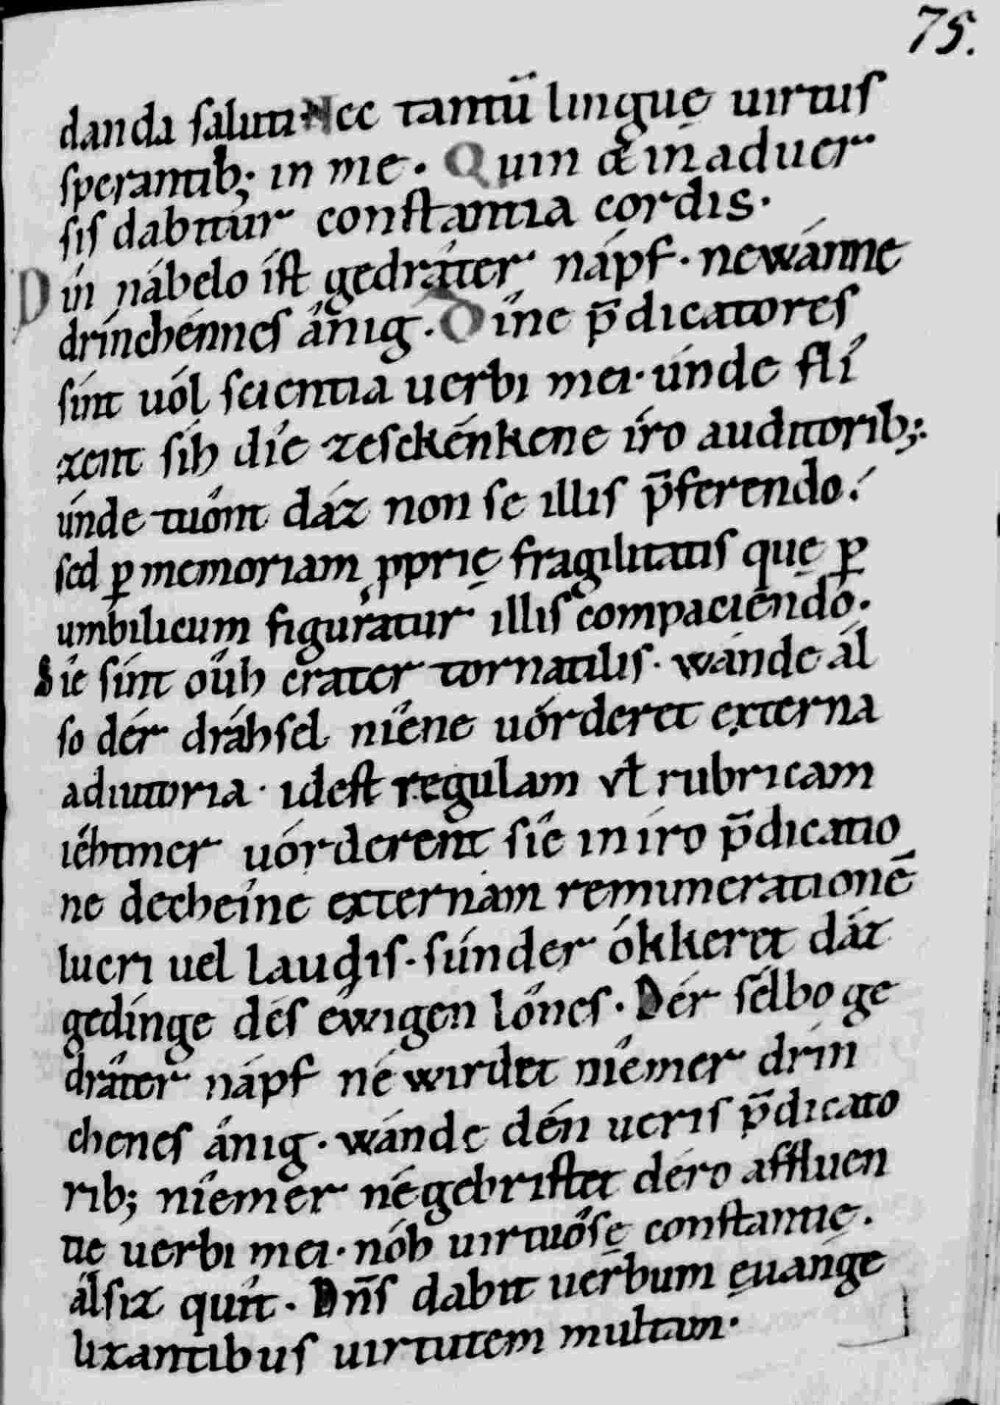 75.
danda saluti· Nec tantū linguę uirtus
sperantib; in me. Quin & in aduer
sis dabitur constantia cordis.
Dín nábelo íst gedrâter nápf. newánne
drínchénnes ânig. Dîne p̄dicatores
sínt uól scientia uerbi mei. únde flî
zent síh díe zeskénkene íro auditorib;.
únde tûont dáz non se illis p̄ferendo.
sed ꝑ memoriam ꝓprię fragilitatis quę ꝑ
umbilicum figuratur illis compaciendo.
Sie sínt oûh crater tornatilis. wánde ál
so dér dráhsel nîene uórderet externa
adiutoria. idest regulam vł rubricam
iêhtmer uórderent sîe in íro p̄dicatio
ne decheíne externam remunerationē
lucri uel laudis. súnder ókkeret dáz
gedínge dés êwigen lônes. Dér sélbo ge
drâter nápf né wirdet nîemer drín
chenes ânig. wánde dén ueris p̄dicato
rib; nîemer né gebristet déro affluen
tie uerbi mei. nóh uirtuôsę constantię.
álsiz quît. Dn̄s dabit uerbum euange
lizantibus uirtutem multam.